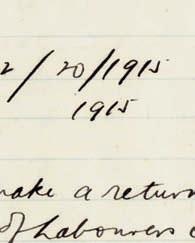 2/20/1915
1915
make a return
of Labourers